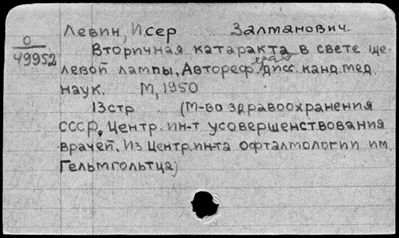 Левин, Исер Залманович.
О
49952
Вторичная катаракта в свете ще-
левой лампы. Автореф. дисс. канд. мед.
наук. М, 1950
13стр (М-во здравоохранения
СССР. Центр. ин-т усовершенствования
врачей. Из Центр. ин-та офталмологии им.
Гельмгольтца)